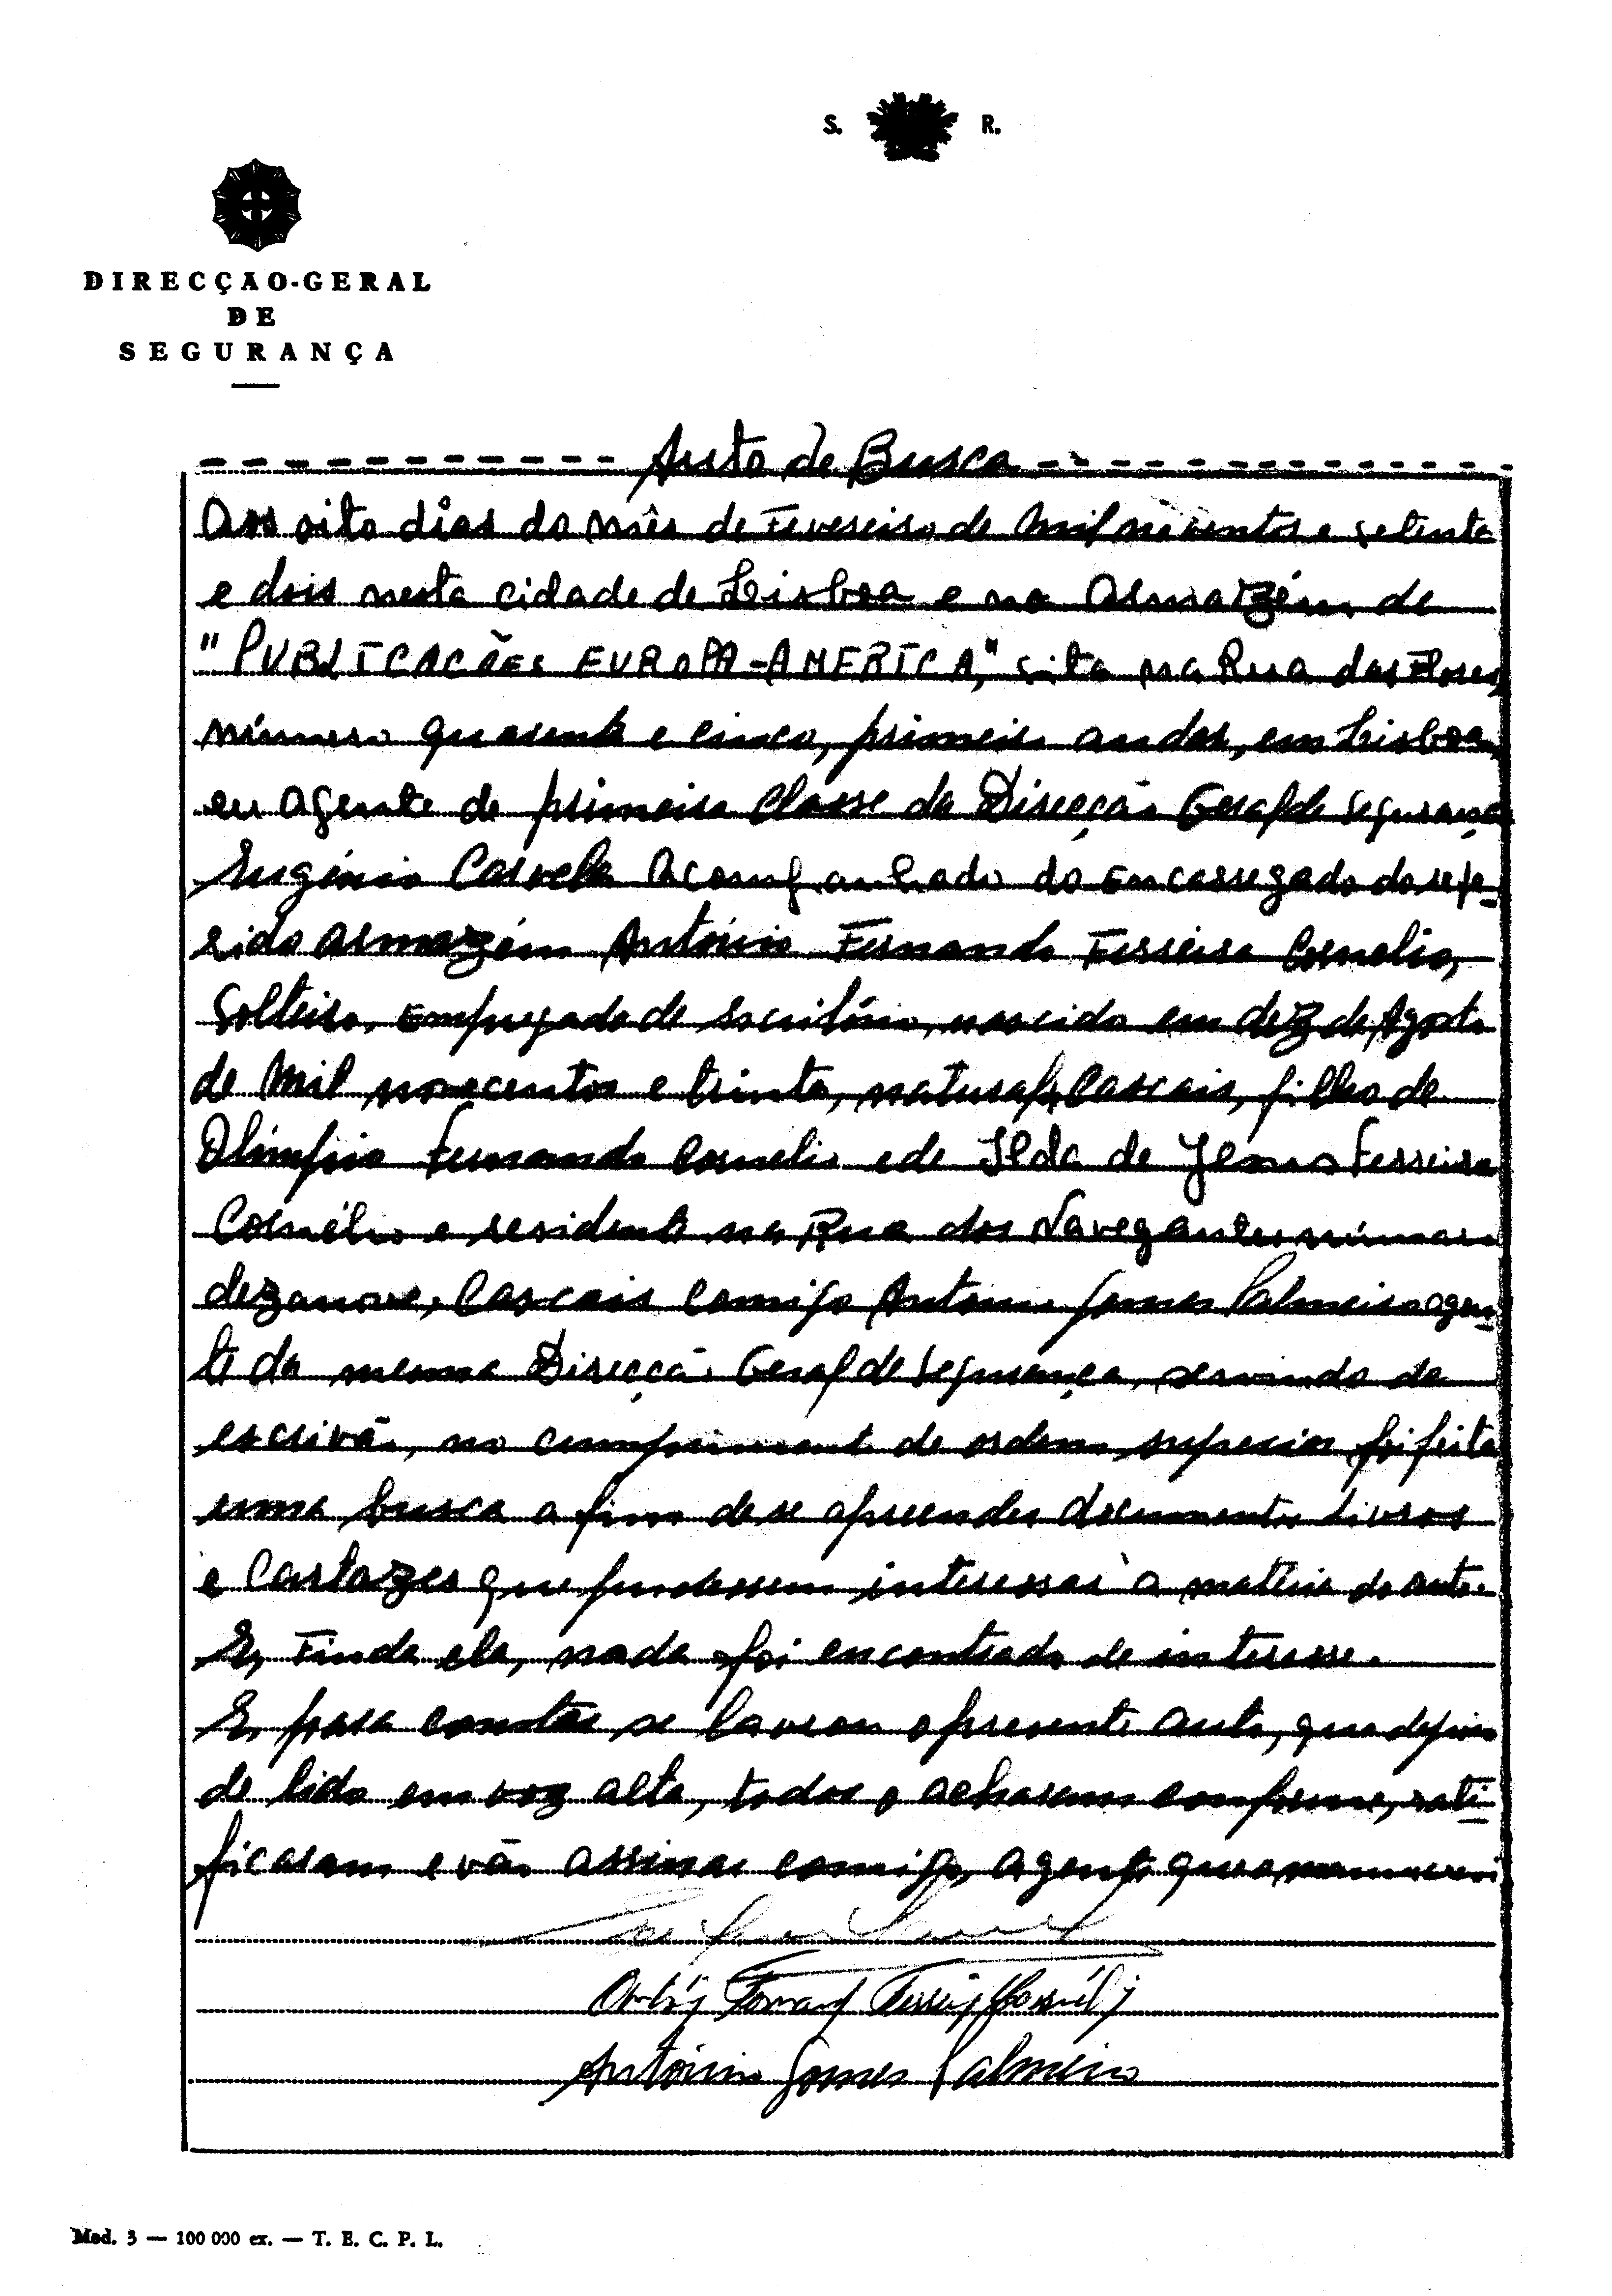 S. R.
DIRECÇÃO-GERAL
DE
SEGURANÇA
Auto de Busca
Aos oito dias do mês de Fevereiro de mil novecentos e setenta
e dois nesta cidade de Lisboa e no Armazém de
"PUBLICAÇÕES EUROPA-AMERICA," sito na Rua das Flores,
número quarenta e cinco, primeiro andar, em Lisboa,
eu Agente de primeira Classe da Direcção Geral de Segurança
Eugénio acompanhado do Encarregado do refe-
rido armazém António Fernando Ferreira Cornelio,
Solteiro, Empregado de Escritório, nascido em dez de Agosto
de mil novecentos e trinta, natural de Cascais, filho de
Olímpio Fernando Cornelio e de Ilda de Ferreira
Cornélio e residente na Rua dos Navegantes número
dezanove, Cascais comigo Antonio Gomes Palmeiro agen-
te da mesma Direcção Geral de Segurança, servindo de
escrivão, no cumprimento de ordem superior foi feita
uma busca a fim de se apreender documentos livros
e Cartazes que pudessem interessar à matéria do auto.
E, Finda ela, nada foi encontrado de interesse.
E, para constar se lavrou o presente auto, que depois
de lido em voz alta, todos o acharam conforme, rati-
ficaram e vão assinar comigo, agente que o manuscrevi
António Gomes Palmeiro
Mod. 3 — 100 000 ex. — T. E. C. P. L.